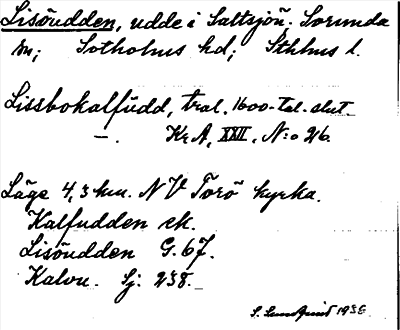 Lisöudden, udde i Saltsjön. Sorunda
sn; Sotholms hd; Sthlms l.
Lissbokalfudd, tral. 1600-tal. slut
—. Kr A, XXII, N:o 26.
Läge 4,3 km. NV Torö kyrka.
Kalfudden ek.
Lisöudden G. 67.
Kalvu. Sj. 238.
S. Lundquist 1936